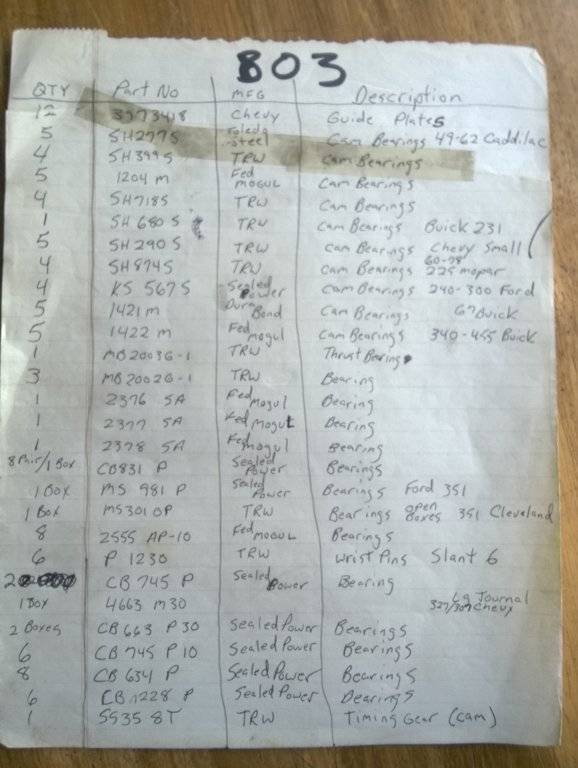 803
QTY Part No MFG Description
12 3973418 Chevy Guide Plates
5 SH277S Toledo Steel Cam Bearings 49-62 Caddilac
4 SH399S TRW Cam Bearings
5 1204 M Fed Mogul Cam Bearings
4 SH718S TRW Cam Bearings
1 SH 680 S TRW Cam Bearings Buick 231
5 SH 290 S TRW Cam Bearings Chevy Small
4 SH874S TRW Cam Bearings 60-78 225 mopar
4 KS 567S Sealed Power Cam Bearings 240-300 Ford
5 1421 m Dura Bond Cam Bearings 67 Buick
5 1422 m Fed Mogul Cam Bearings 340-455 Buick
1 MB2003G-1 TRW Thrust Bering
3 MB2002G-1 TRW Bearing
1 2376 SA Fed Mogul Bearing
1 2377 SA Fed Mogul Bearing
1 2378 SA Fed Mogul Bearing
8 Pair/1 Box CB831 P Sealed Power Bearings
1 Box MS 981 P Sealed Power Bearings Ford 351
1 Box MS3010P TRW Bearings open Boxes 351 Cleveland
8 2555 AP-10 Fed Mogul Bearings
6 P 1230 TRW Wrist Pins Slant 6
2 CB 745 P Sealed Power Bearing
1 Box 4663 M30 Lg Journal 327/307 Chevy
2 Boxes CB 663 P 30 Sealed Power Bearings
6 CB 745 P 10 Sealed Power Bearings
8 CB 634 P Sealed Power Bearings
6 CB 1228 P Sealed Power Bearings
1 S535 8T TRW Timing Gear (cam)